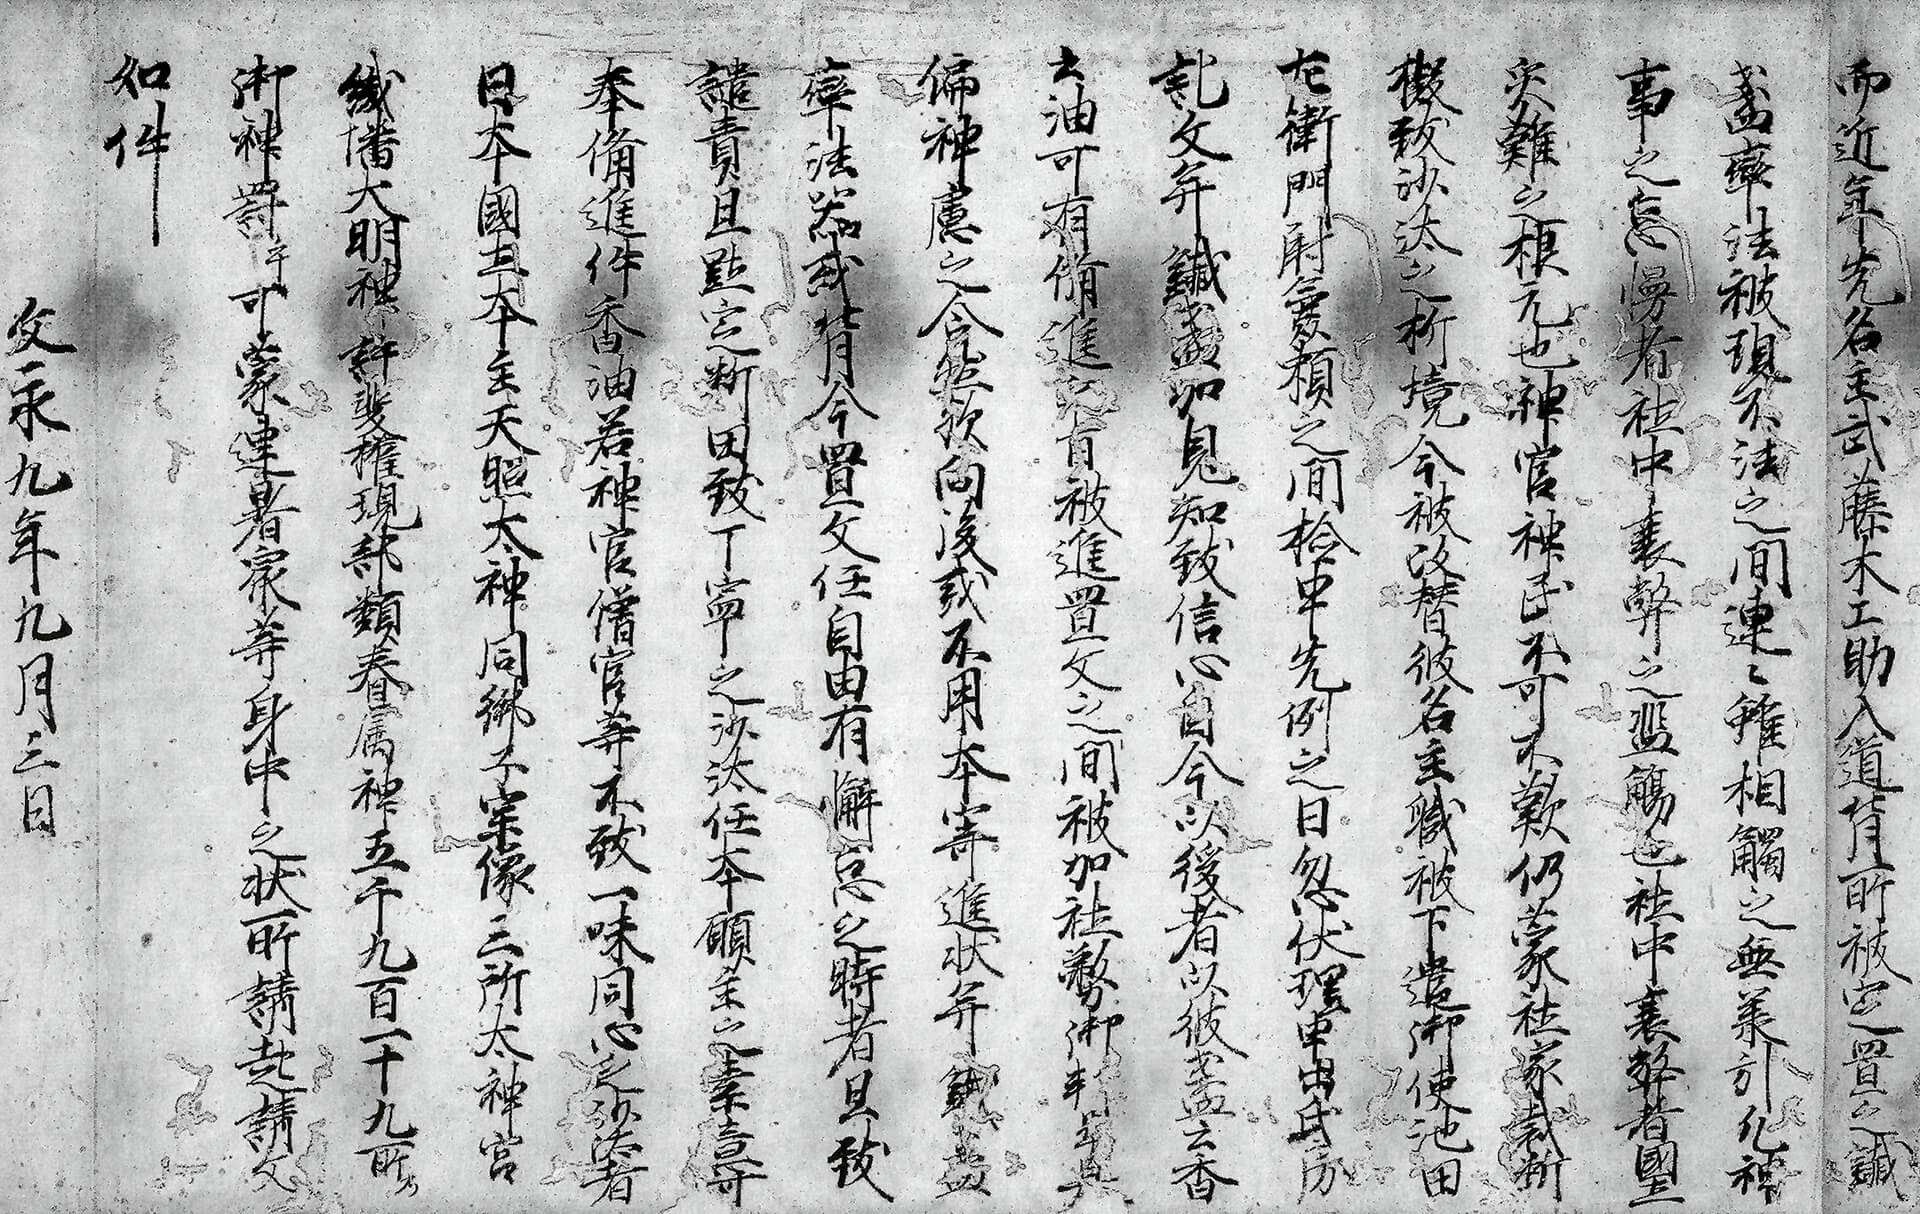 而近年先名主武藤木工助入道背所被定置之誡
盞率法被現不法之間連々雖相觸之無業引凡神
事之怠慢者社中衰弊之濫觴也社中衰弊者國土
災難之根元也神官神民不可不歎仍蒙社家裁断
擬致沙汰之析境今被改替彼名主職被下遣御使池田
左衛門尉 頼之間捨申先例之日忽伏理申出
記文并鐡盞加見知致信心自今以後者以彼盞云香
云油可有備進 被進置文之間被加社務御
偏神慮之令然歟向後或不用本寄進状并鐡盞
率法器或背今置文任自由有懈怠之時者且致
譴責且點定斯田致丁寧之沙汰任本願主之素意可
奉備進件香油若神官僧官等不致一味同心之沙汰者
日本國主本主天照太神同御子宗像三所太神宮
織幡大明神許斐権現部類眷属神五千九百一十九所
御神罰 可蒙連署衆等身中之状所請 請文
如件
文永九年九月三日